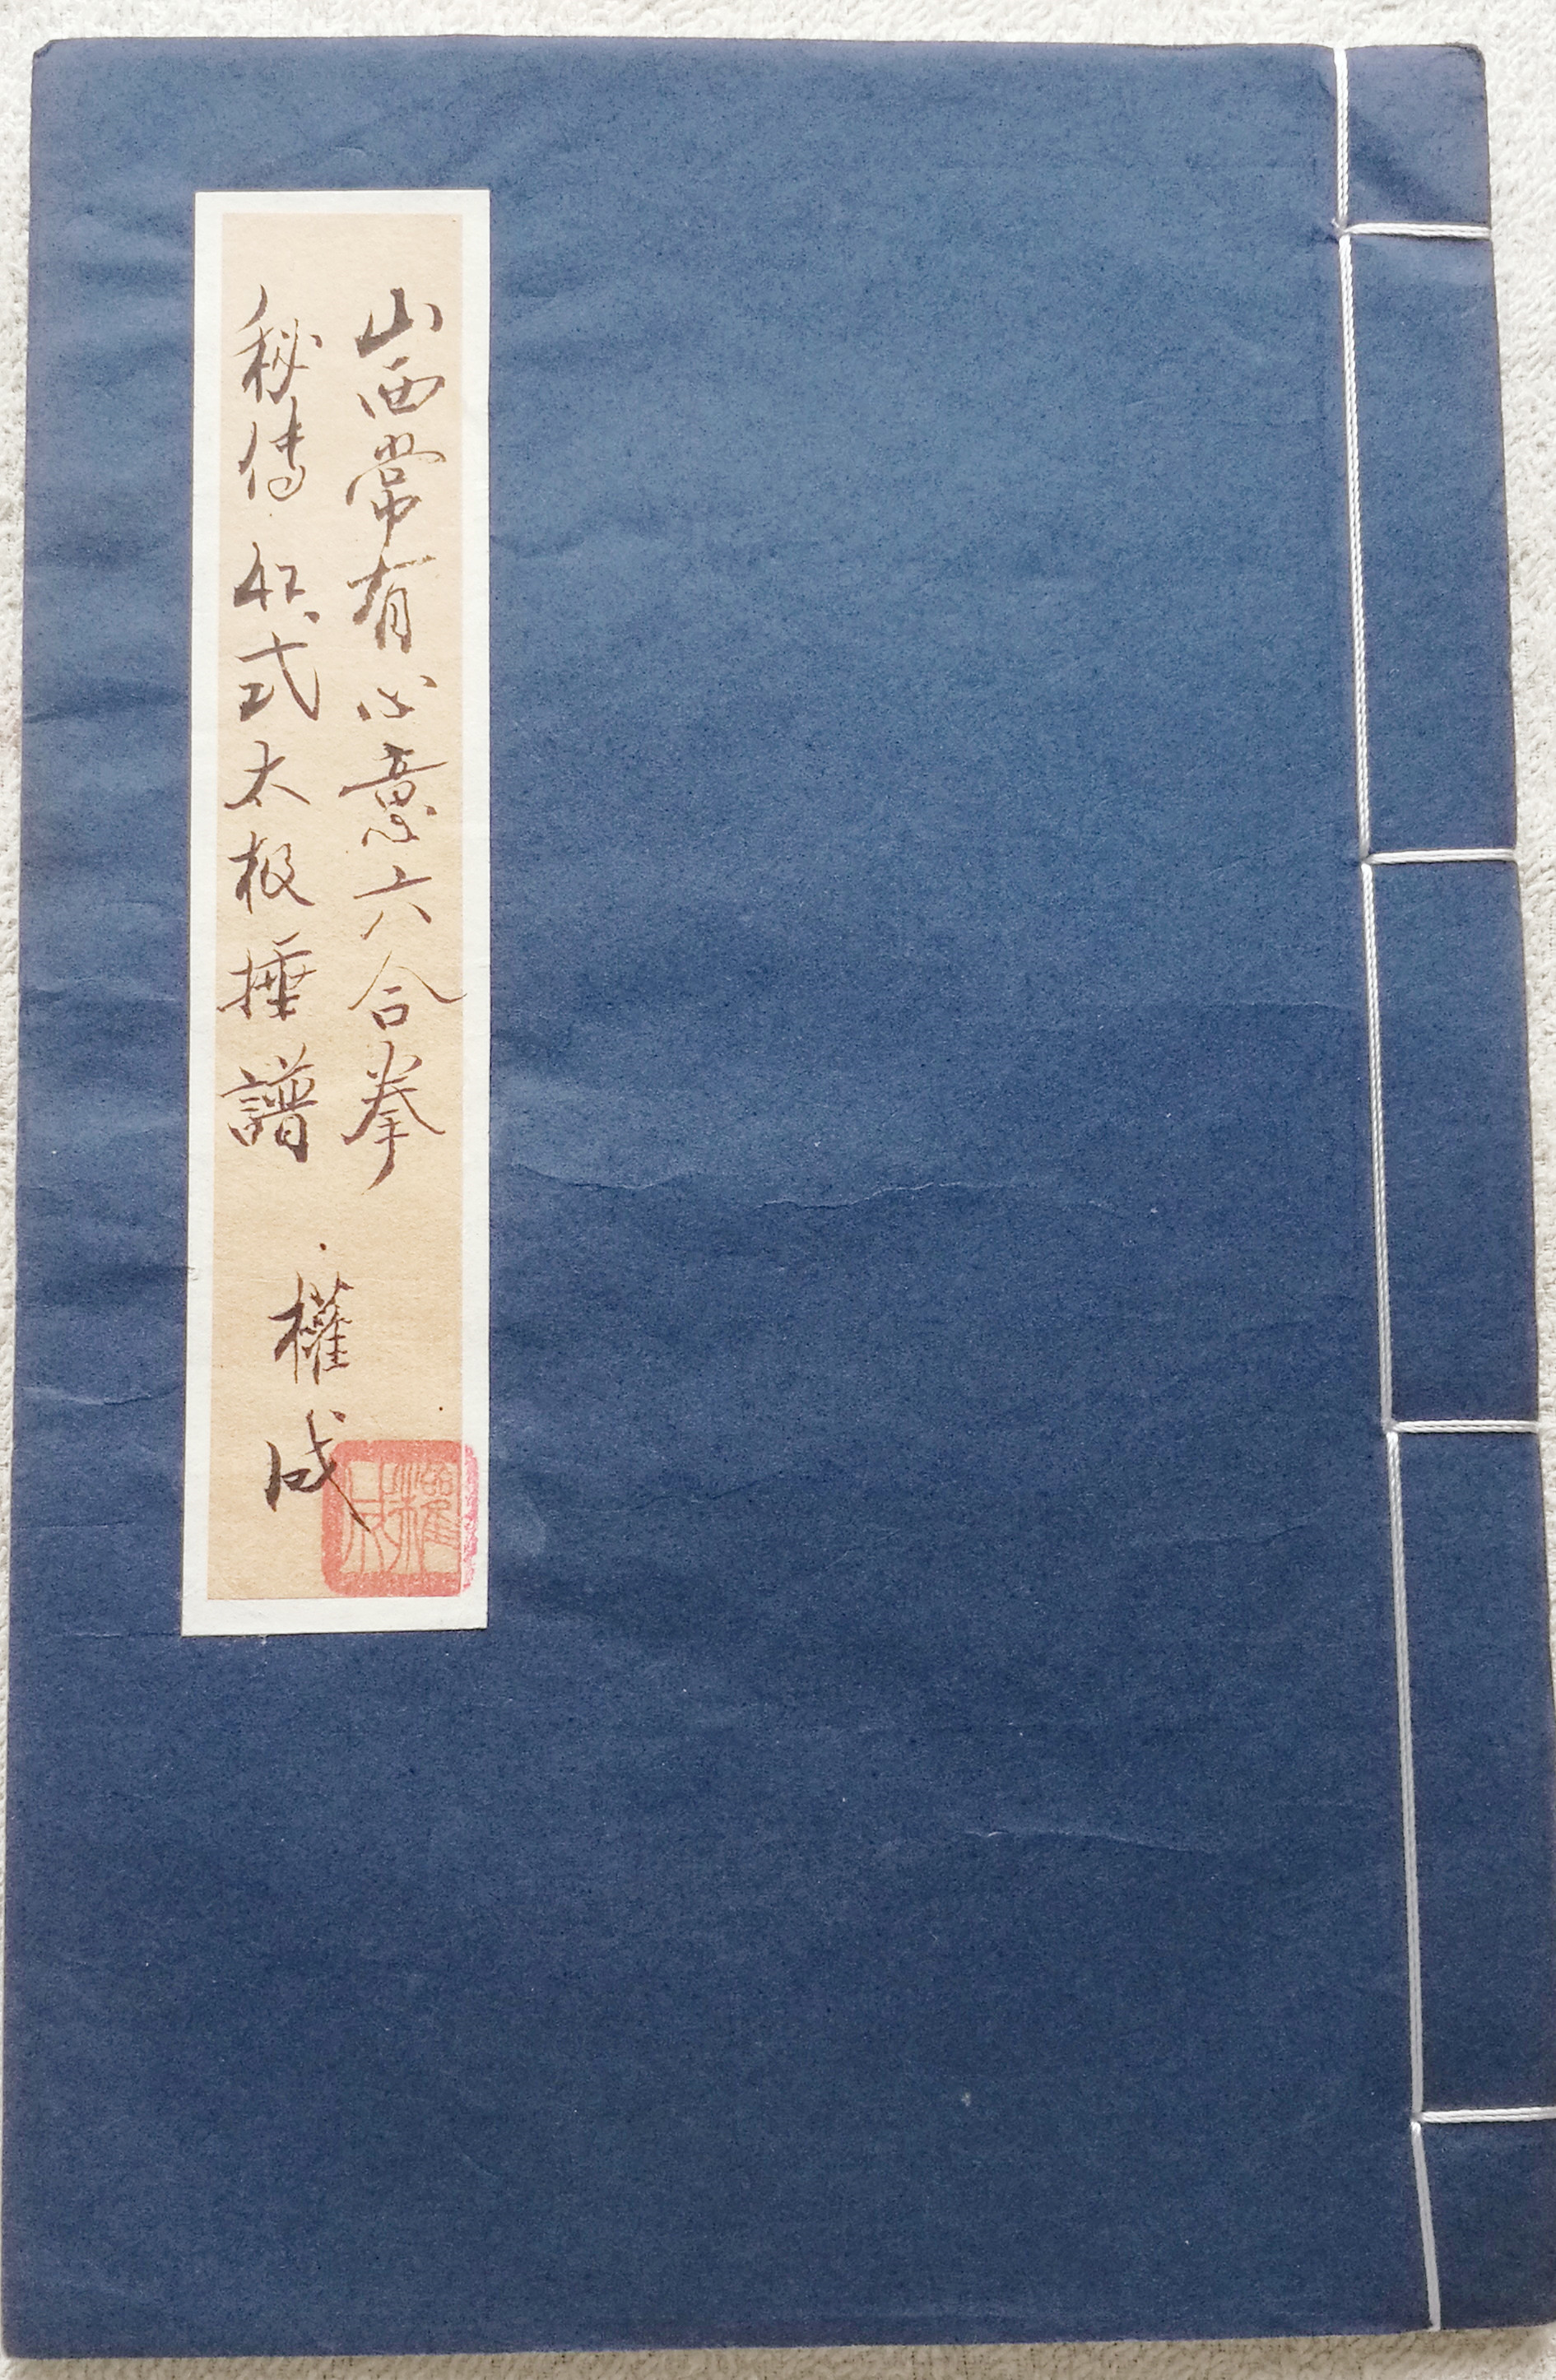 山西常有心意六合拳
秘傳42式太极捶譜
權成
權成